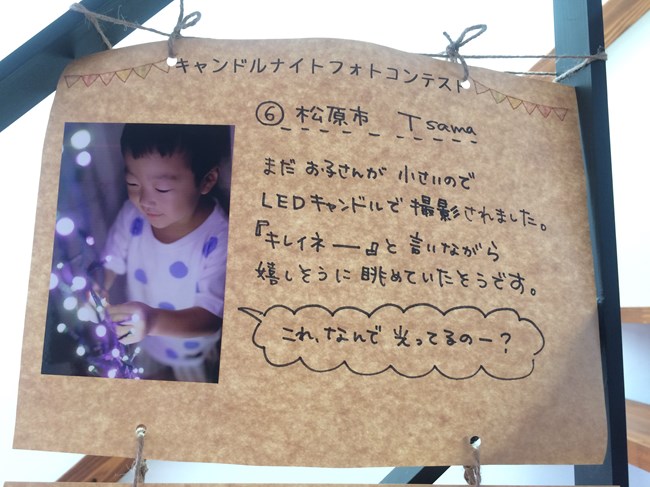 キャンドルナイトフォトコンテスト
⑥ 松原市 Tsama
まだ お子さんが 小さいので
LEDキャンドルで 撮影されました。
『キレイネー』と 言いながら
嬉しそうに 眺めていたそうです。
これ、なんで 光ってるのー?